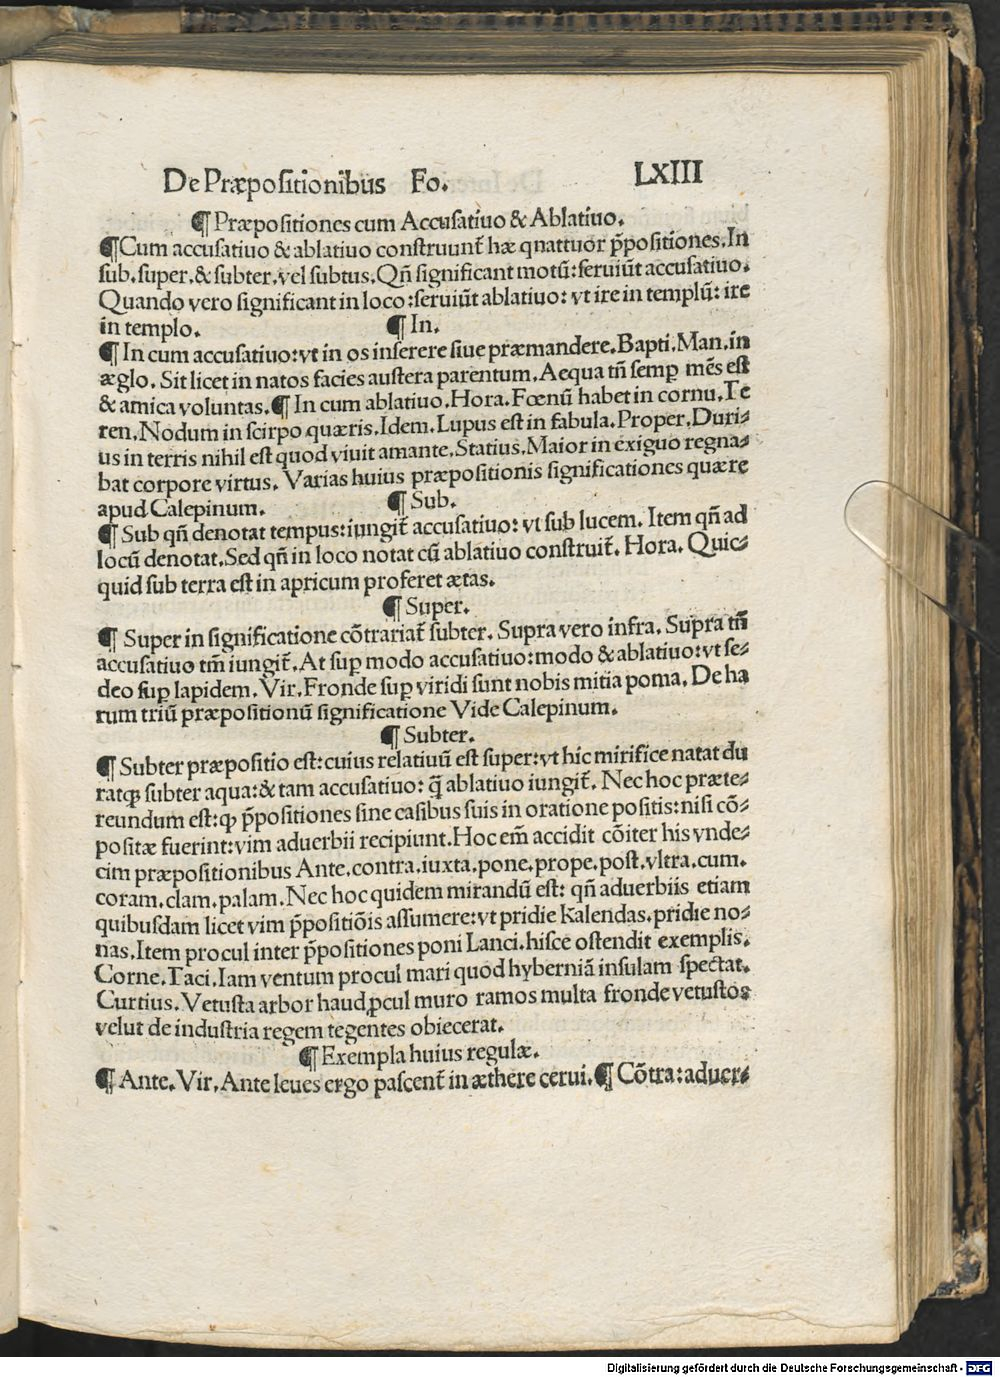 De Præpositionibus Fo. LXIII
¶ Præpositiones cum Accusatiuo & Ablatiuo.
¶ Cum accusatiuo & ablatiuo construunt̃ hæ qnattuor p̃positiones. In
sub. super. & subter. vel subtus. Qñ significant motũ: seruiũt accusatiuo.
Quando vero significant in loco: seruiũt ablatiuo: vt ire in templũ: ire
in templo. ¶ In.
¶ In cum accusatiuo: vt in os inserere siue præmandere. Bapti. Man. in
æglo. Sit licet in natos facies austera parentum. Aequa tñ semꝑ mẽs est
& amica voluntas. ¶ In cum ablatiuo. Hora. Fœnũ habet in cornu. Te
ren. Nodum in scirpo quæris. Idem. Lupus est in fabula. Proper. Duri⸗
us in terris nihil est quod viuit amante. Statius. Maior in exiguo regna⸗
bat corpore virtus. Varias huius præpositionis significationes quære
apud Calepinum. ¶ Sub.
¶ Sub qñ denotat tempus: iungit̃ accusatiuo: vt sub lucem. Item qñ ad
locũ denotat. Sed qñ in loco notat cũ ablatiuo construit̃. Hora. Quic⸗
quid sub terra est in apricum proferet ætas.
¶ Super.
¶ Super in significatione cõtrariat̃ subter. Supra vero infra. Supra tm̃
accusatiuo tm̃ iungit̃. At suꝑ modo accusatiuo: modo & ablatiuo: vt se⸗
deo suꝑ lapidem. Vir. Fronde suꝑ viridi sunt nobis mitia poma. De ha
rum triũ præpositionũ significatione Vide Calepinum.
¶ Subter.
¶ Subter præpositio est: cuius relatiuũ est super: vt hic mirifice natat du
ratqꝫ subter aqua: & tam accusatiuo: q̃ ablatiuo iungit̃. Nec hoc præte⸗
reundum est: ꝙ p̃positiones sine casibus suis in oratione positis: nisi cõ⸗
positæ fuerint: vim aduerbii recipiunt. Hoc em̃ accidit cõiter his vnde⸗
cim præpositionibus Ante. contra. iuxta. pone. prope. post. vltra. cum.
coram. clam. palam. Nec hoc quidem mirandũ est: qñ aduerbiis etiam
quibusdam licet vim p̃positiõis assumere: vt pridie Kalendas. pridie no⸗
nas. Item procul inter p̃positiones poni Lanci. hisce ostendit exemplis.
Corne. Taci. Iam ventum procul mari quod hyberniã insulam spectat.
Curtius. Vetusta arbor haud ꝓcul muro ramos multa fronde vetustos
velut de industria regem tegentes obiecerat.
¶ Exempla huius regulæ.
¶ Ante. Vir. Ante leues ergo pascent̃ in æthere cerui. ¶ Cõtra: aduer⸗
Digitalisierung gefördert durch die Deutsche Forschungsgemeinschaft - DFG